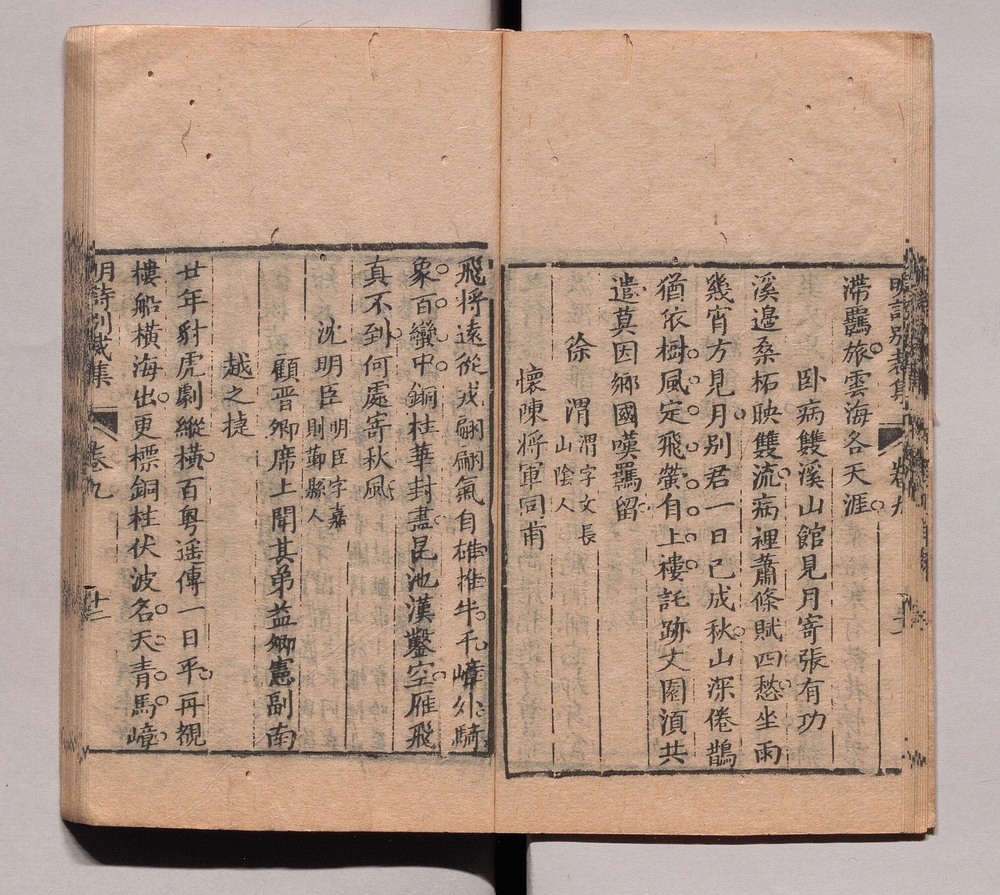 明詩別裁集 卷九
滯羈旅雲海各天涯
臥病雙溪山館見月寄張有功
溪邊桑柘映雙流病裡蕭條賦四愁坐雨
幾宵方見月別君一日已成秋山深倦鵲
猶依樹風定飛螢自上樓託跡丈園湏共
遣莫因鄉國嘆羈留
徐渭 渭字文長
山陰人
懷陳將軍同甫
飛將遠從戎翩翩氣自雄推牛千嶂外騎
象百蠻中銅柱華封盡昆池漢鑿空雁飛
真不到何處寄秋風
沈明臣 明臣字嘉
則鄞縣人
顧晋卿席上聞其弟益卿憲副南
越之捷
廿年豺虎劇縱橫百粤遥傳一日平再覩
樓船橫海出更標銅柱伏波名天青馬嶂
明詩別裁集 卷九 十二